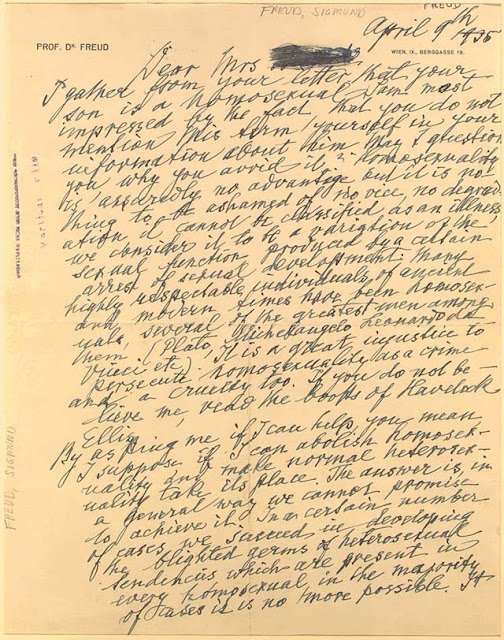 FREUD
FREUD, SIGMUND
April 9th 1935
PROF. DR. FREUD
WIEN, IX., BERGGASSE 19.
Dear Mrs
I gather from your letter that your
son is a homosexual. I am most
impressed by the fact, that you do not
mention this term yourself in your
information about him. May I question
you why you avoid it? Homosexuality
is assuredly no advantage but it is no
thing to be ashamed of, no vice, no degrad
ation it cannot be classified as an illness
we consider it to be a variation of the
sexual function produced by a certain
arrest of sexual development. Many
highly respectable individuals of ancient
and modern times have been homosex-
uals, several of the greatest men among
them (Plato, Michelangelo Leonardo da
Vinci etc). It is a great injustice to
persecute homosexuality as a crime
and a cruelty too. If you do not be-
lieve me, read the books of Havelock
Ellis.
By asking me if I can help, you mean
I suppose, if I can abolish homosex-
uality and make normal heterosex-
uality take its place. The answer is, in
a general way we cannot promise
to achieve it. In a certain number
of cases we succeed in developing
the blighted germs of heterosexual
tendencies which are present in
every homosexual, in the majority
of cases it is no more possible. It
FREUD, SIGMUND